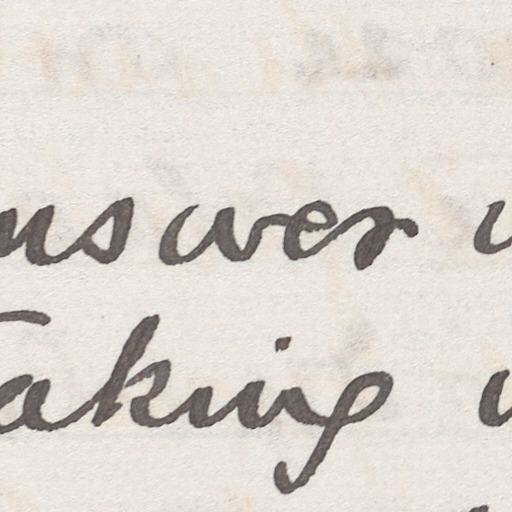 answer
taking